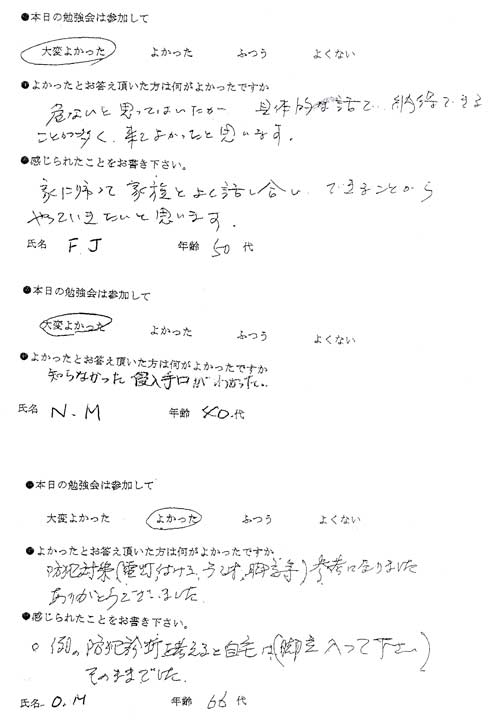 ●本日の勉強会は参加して
大変よかった よかった ふつう よくない
●よかったとお答え頂いた方は何がよかったですか
危ないと思ってはいたが 具体的な話で、納得できる
ことが多く、来てよかったと思います。
●感じられたことをお書き下さい。
家に帰って家族とよく話し合い、できることから
やっていきたいと思います。
氏名 F.J 年齢 50代
●本日の勉強会は参加して
大変よかった よかった ふつう よくない
●よかったとお答え頂いた方は何がよかったですか
知らなかった侵入手口がわかった。
氏名 N.M 年齢 40代
●本日の勉強会は参加して
大変よかった よかった ふつう よくない
●よかったとお答え頂いた方は何がよかったですか
防犯対策(電灯付ける、 参考になりました
ありがとうございました。
●感じられたことをお書き下さい。
○ 例の防犯診断を考えると自宅は(
そのままでした。
氏名 O.M 年齢 66代